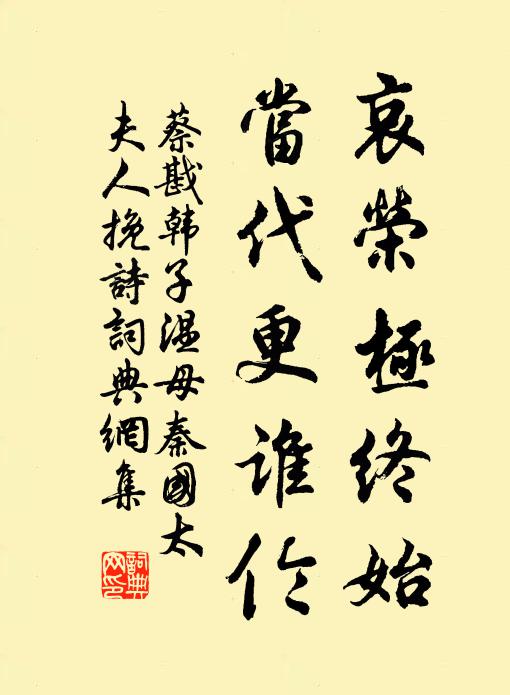 哀榮極終始
當代更誰伦
蔡戡韩子温母秦國太
夫人挽詩詞典網集
詞典
网印